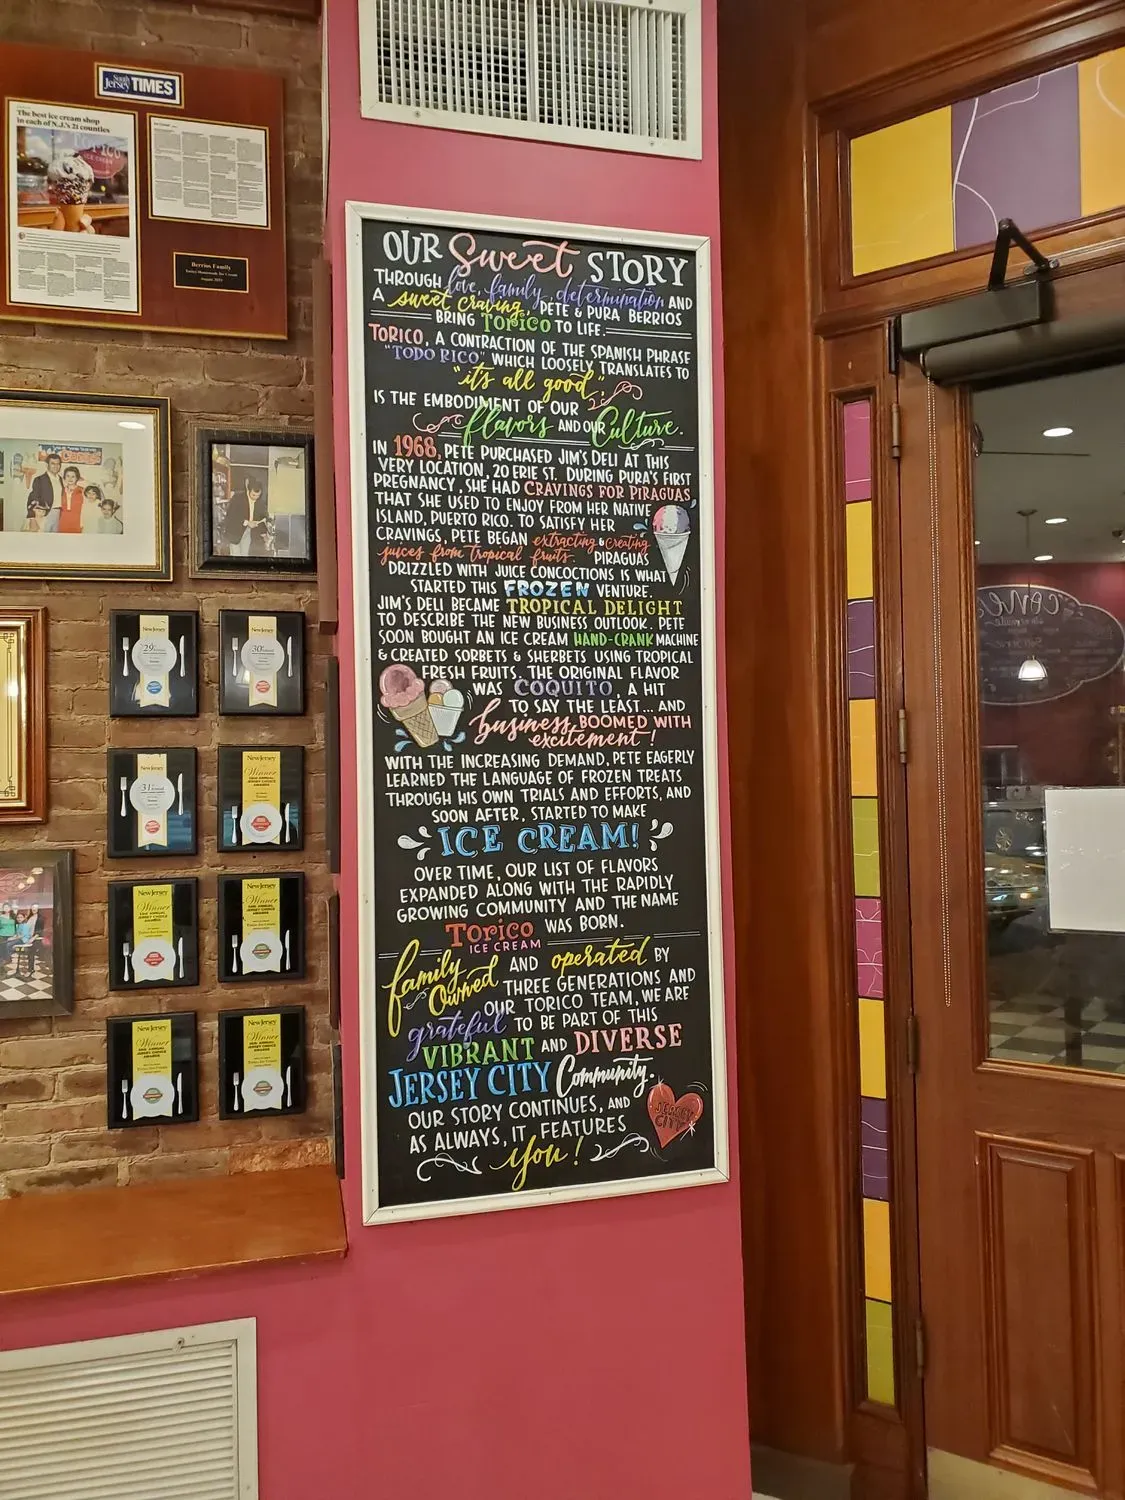 South Jersey TIMES
The best ice cream shop
in each of N.J.'s 21 counties
TORICO
ICE CREAM
Berrios Family
OUR Sweet STORY
THROUGH love, family, determination AND
A sweet craving, PETE & PURA BERRIOS
BRING TORICO TO LIFE.
TORICO, A CONTRACTION OF THE SPANISH PHRASE
"TODO RICO", WHICH LOOSELY TRANSLATES TO
"it's all good",
IS THE EMBODIMENT OF OUR
flavors AND OUR Culture.
IN 1968, PETE PURCHASED JIM'S DELI AT THIS
VERY LOCATION, 20 ERIE ST. DURING PURA'S FIRST
PREGNANCY, SHE HAD CRAVINGS FOR PIRAGUAS
THAT SHE USED TO ENJOY FROM HER NATIVE
ISLAND, PUERTO RICO. TO SATISFY HER
CRAVINGS, PETE BEGAN extracting & creating
juices from tropical fruits. PIRAGUAS
DRIZZLED WITH JUICE CONCOCTIONS IS WHAT
STARTED THIS FROZEN VENTURE.
JIM'S DELI BECAME TROPICAL DELIGHT
TO DESCRIBE THE NEW BUSINESS OUTLOOK. PETE
SOON BOUGHT AN ICE CREAM HAND-CRANK MACHINE
& CREATED SORBETS & SHERBETS USING TROPICAL
FRESH FRUITS. THE ORIGINAL FLAVOR
WAS COQUITO, A HIT
TO SAY THE LEAST... AND
business BOOMED WITH
excitement!
WITH THE INCREASING DEMAND, PETE EAGERLY
LEARNED THE LANGUAGE OF FROZEN TREATS
THROUGH HIS OWN TRIALS AND EFFORTS, AND
SOON AFTER, STARTED TO MAKE
ICE CREAM!
OVER TIME, OUR LIST OF FLAVORS
EXPANDED ALONG WITH THE RAPIDLY
GROWING COMMUNITY AND THE NAME
TORICO WAS BORN.
ICE CREAM
family Owned AND operated BY
THREE GENERATIONS AND
OUR TORICO TEAM, WE ARE
grateful TO BE PART OF THIS
VIBRANT AND DIVERSE
JERSEY CITY Community.
OUR STORY CONTINUES, AND
AS ALWAYS, IT FEATURES
you!
JERSEY
CITY
New Jersey
29th Annual
New Jersey
30th Annual
New Jersey
31st Annual
New Jersey
Winner
New Jersey
Winner
New Jersey
Winner
New Jersey
Winner
New Jersey
Winner